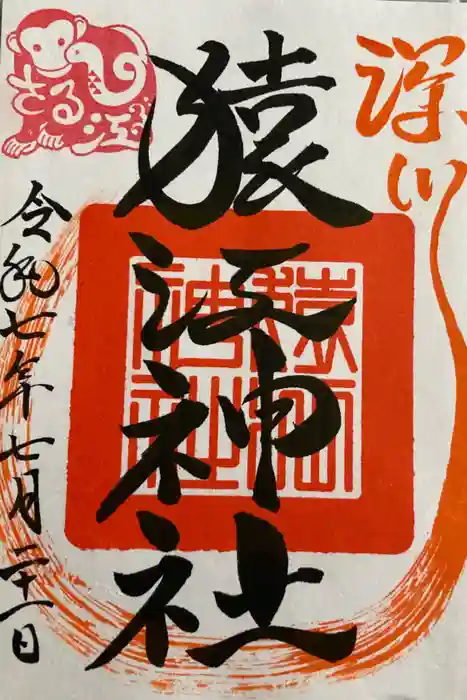 深川
猿江神社
さる江
令和七年七月二十一日